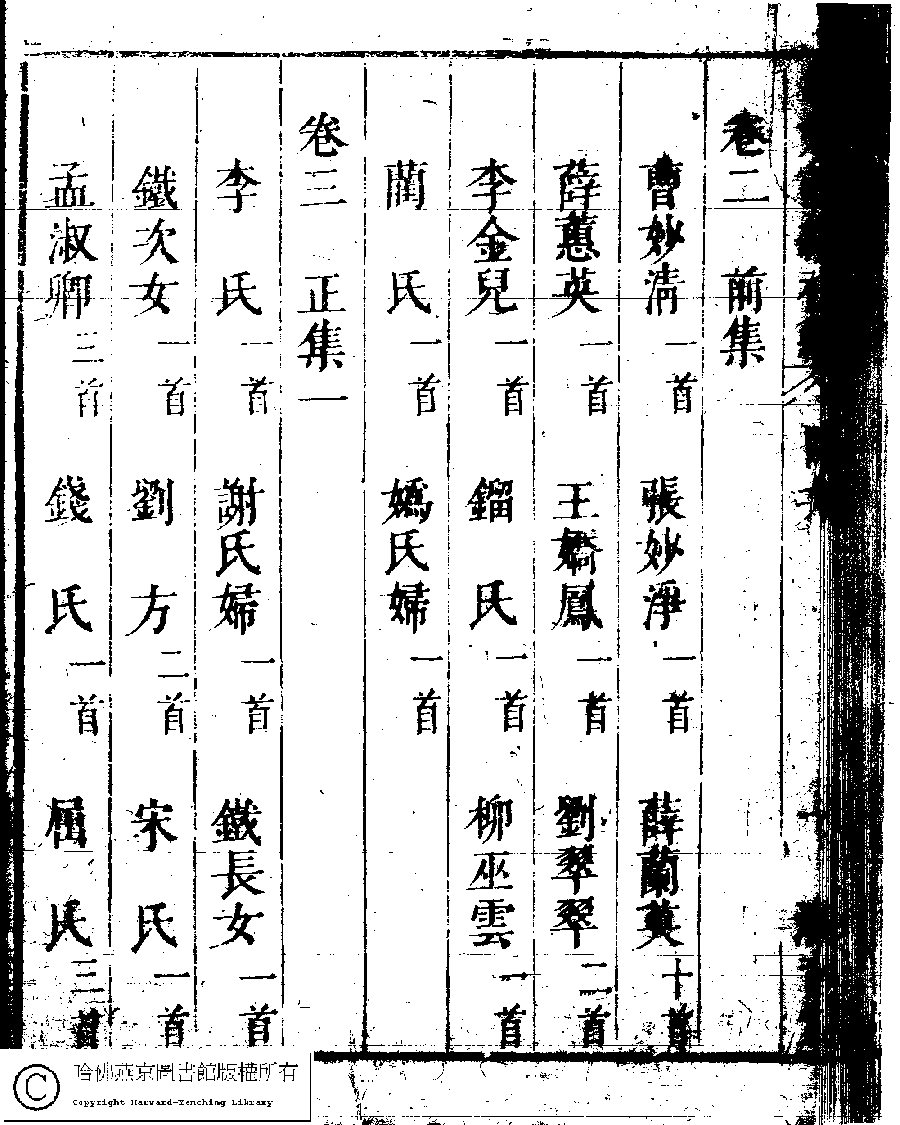 卷二 前集
曹妙清 一首 張妙淨 一首 薛蘭英 十首
薛蕙英 一首 王嬌鳳 一首 劉翠翠 二首
李金兒 一首 鎦 氏 一首 柳巫雲 一首
藺 氏 一首 嬌氏婦 一首
卷三 正集一
李 氏 一首 謝氏婦 一首 鐵長女 一首
鐵次女 一首 劉 方 二首 宋 氏 一首
孟淑卿 三首 錢 氏 一首 屠 氏 三首
哈佛燕京圖書館版權所有
Copyright Harvard-Yenching Library